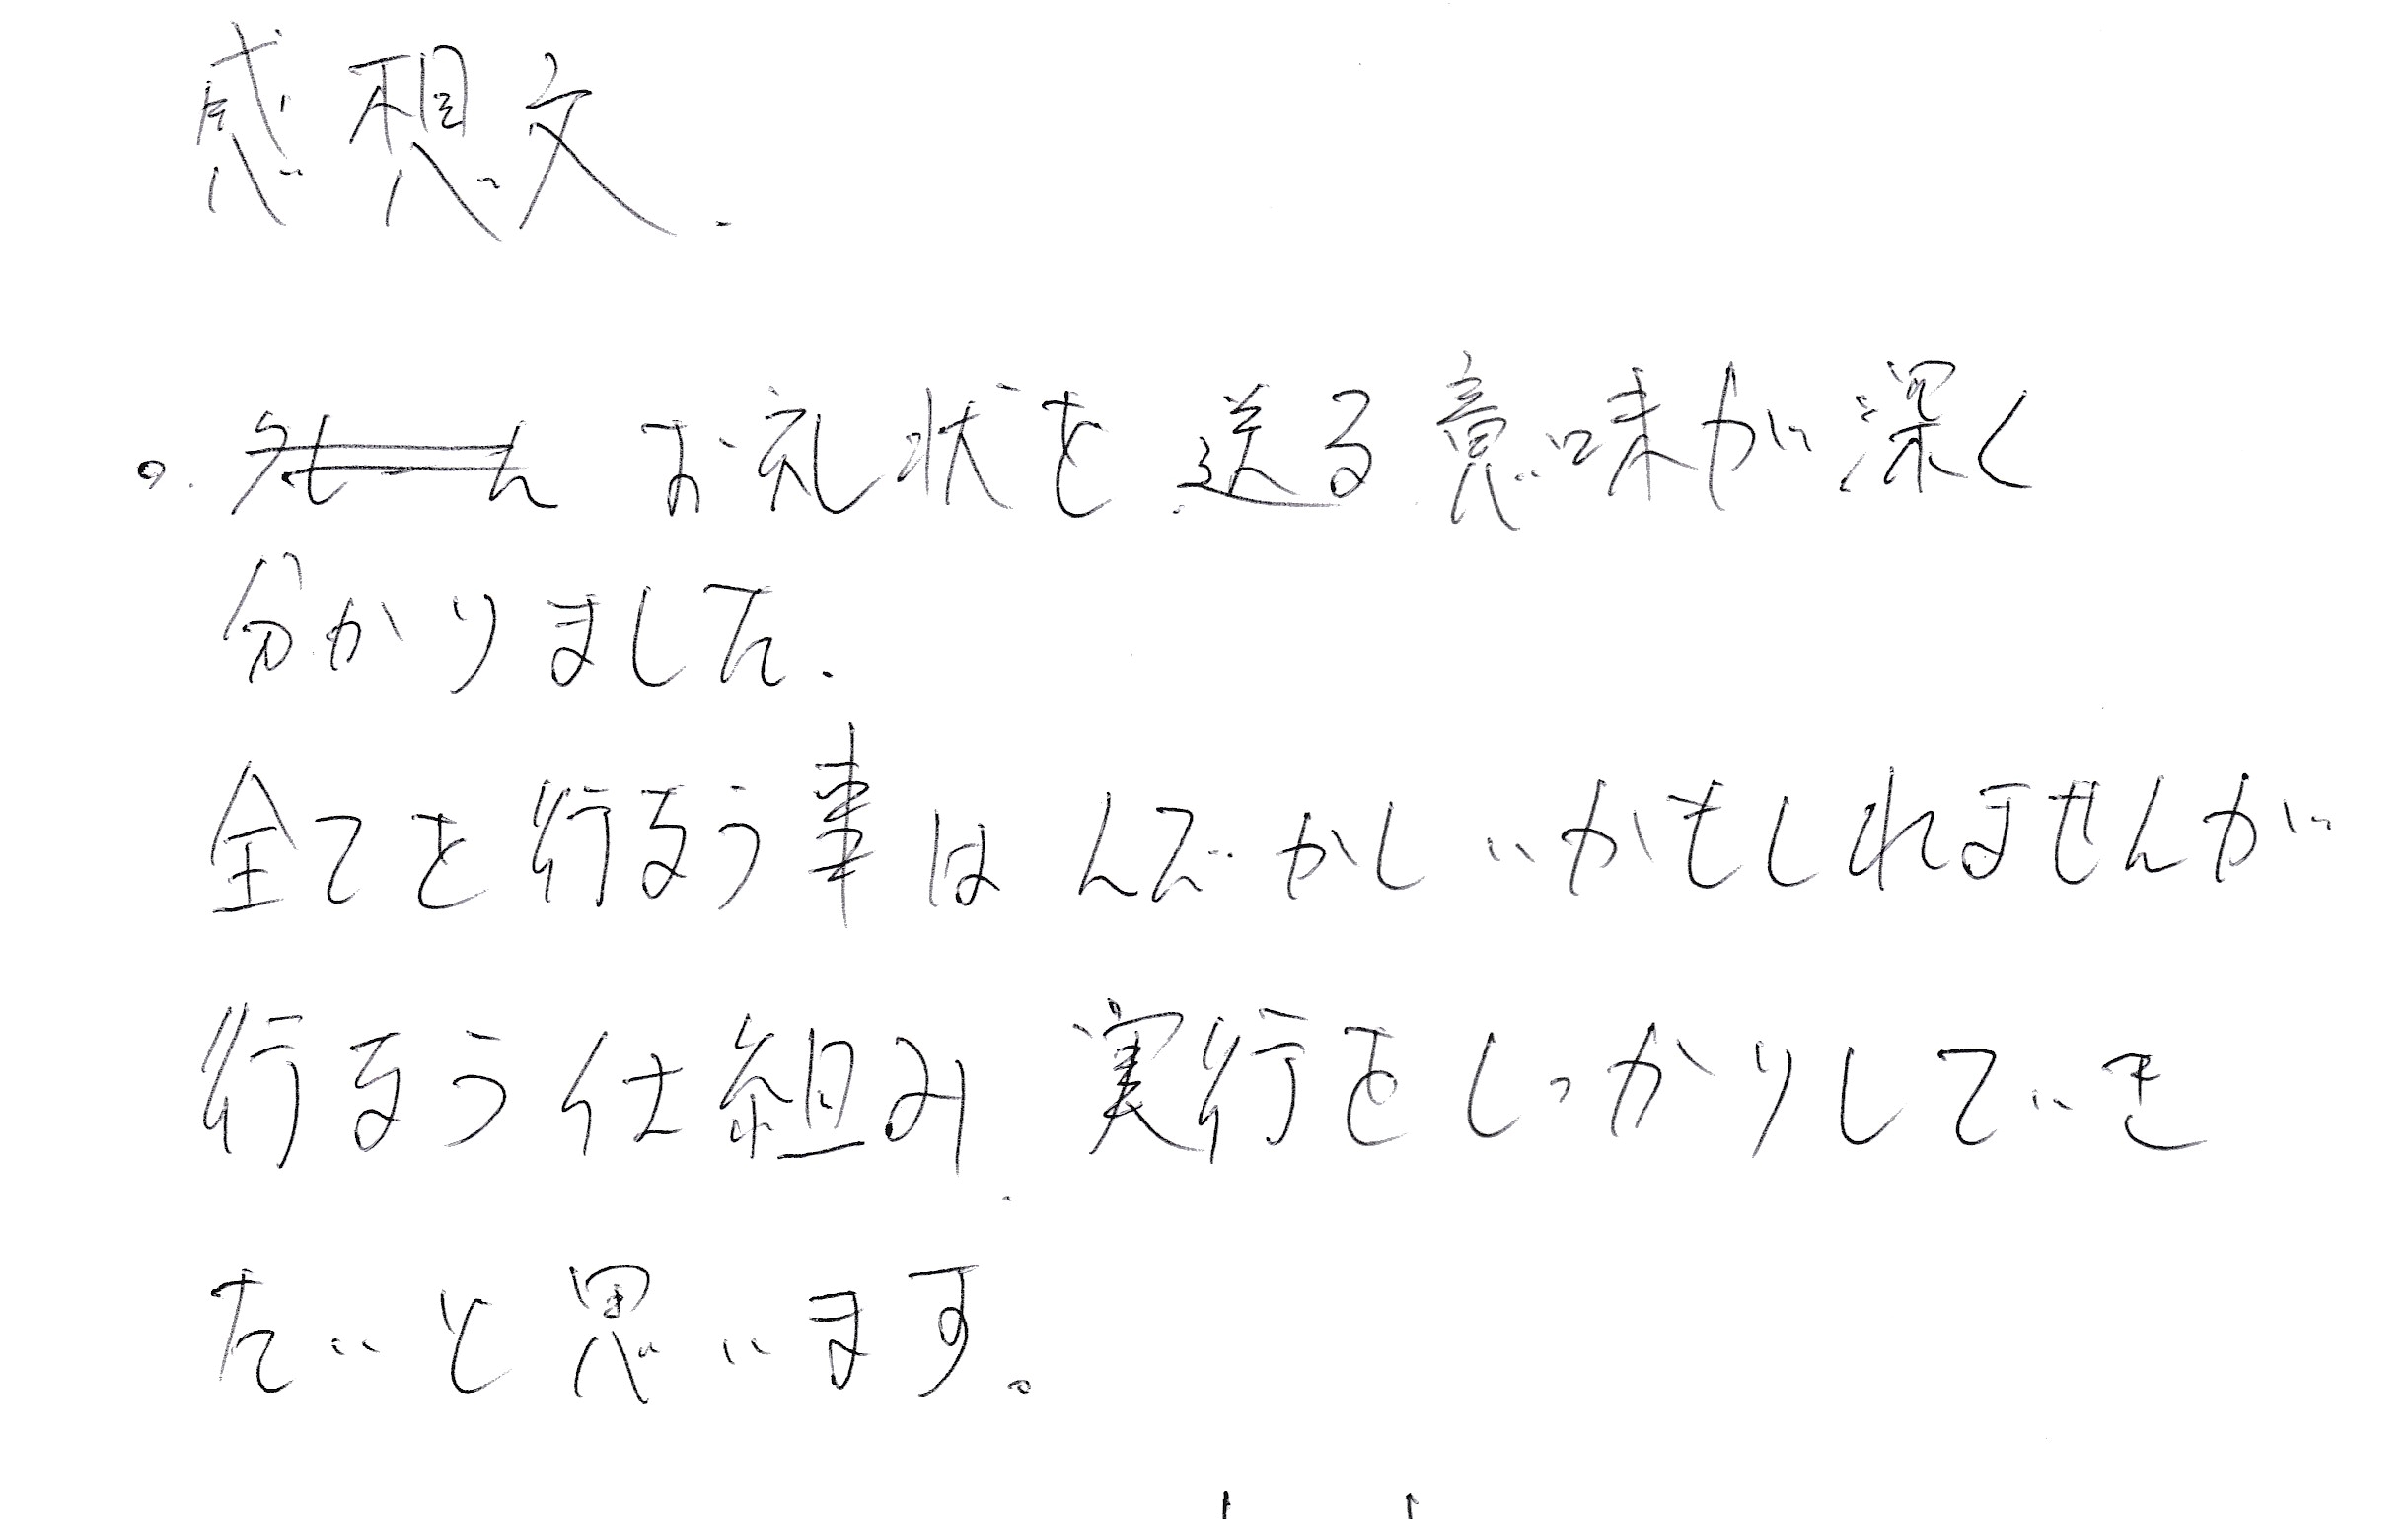 感想文.
。お礼状を送る意味が深く
分かりました.
全てを行なう事はんずかしいかもしれませんが
行なう仕組み 実行をしっかりしていき
たいと思います。